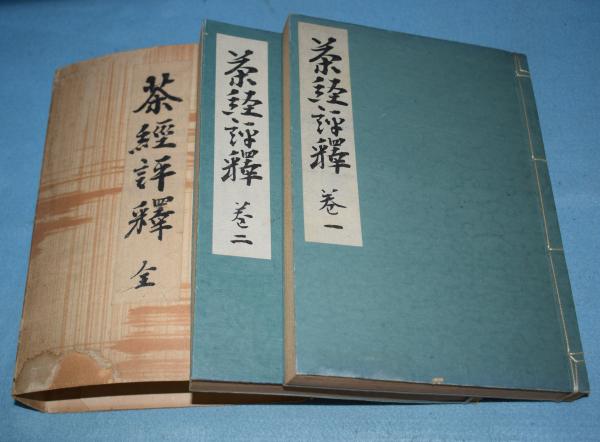 茶經評釋 卷一
茶經評釋 卷二
茶經評釋 全